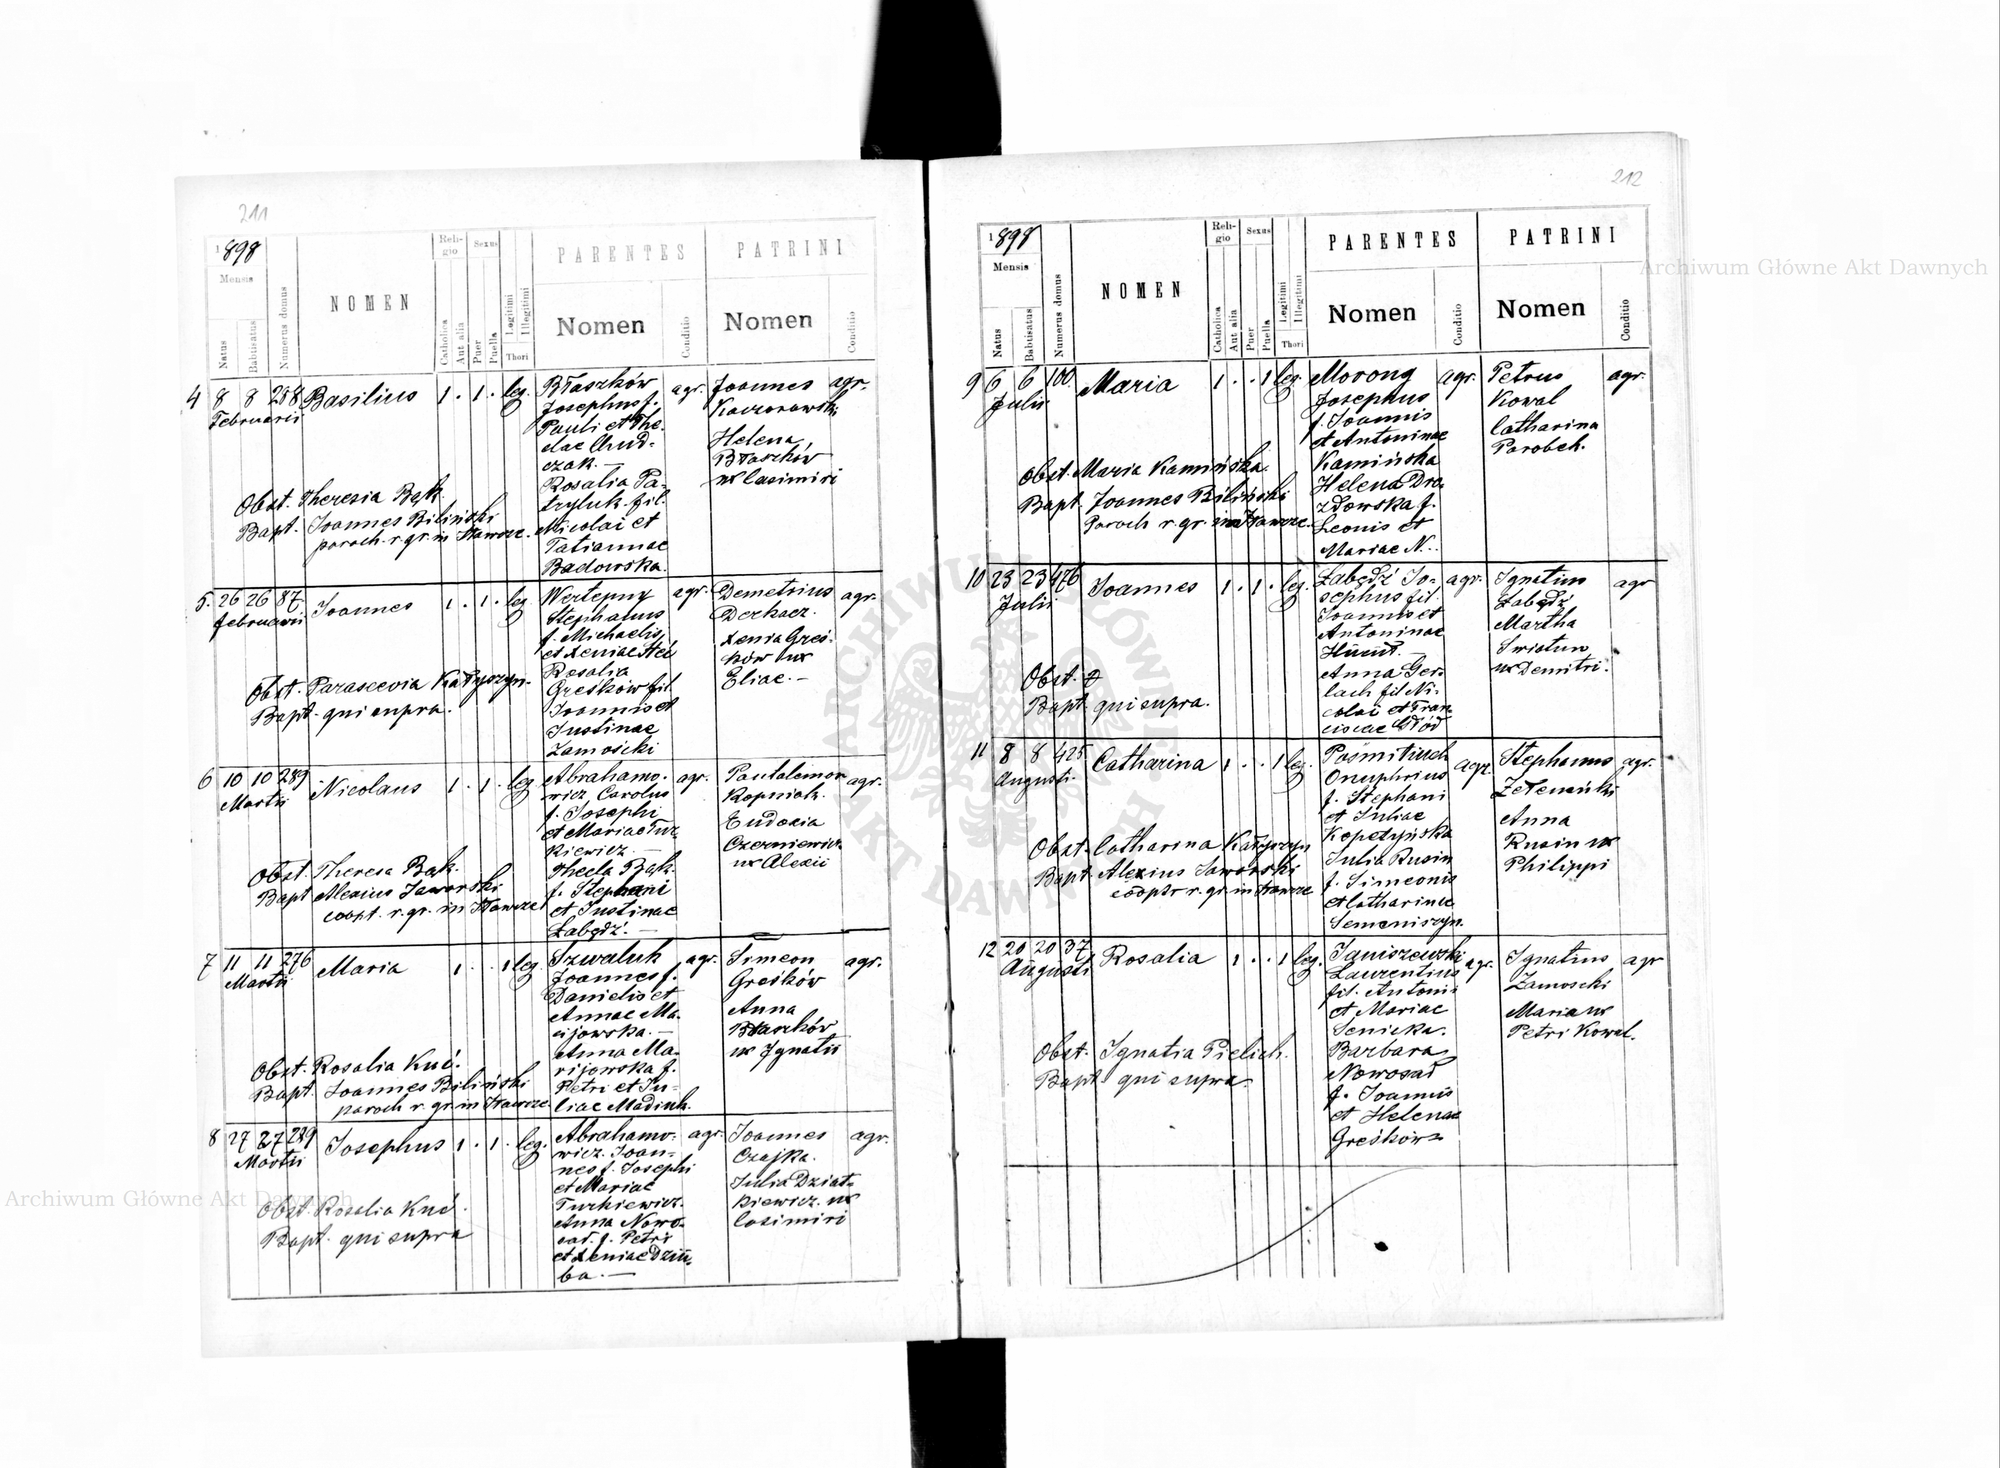 211
1898
Mensis
Natus
Babtisatus
Numerus domus
NOMEN
Religio
Catholica
Aut alia
Sexus
Puer
Puella
Legitimi
Illegitimi
Thori
PARENTES
Nomen
Conditio
PATRINI
Nomen
Conditio
4 8 8 258 Basilius 1 . 1 . leg.
Februarii
Obst. Theresia Bąk
Bapt. Joannes Biliński
paroch. r. gr. in Stawcze.
Błaszków
Josephus f.
Pauli et The-
clae Chud-
czak. —
Rosalia Pa-
tryluk fil.
Nicolai et
Tatiannae
Badowska.
agr.
Joannes
Kaczorowski
Helena
Błaszków
ux Casimiri
agr.
5. 26 26 87 Joannes 1 . 1 . leg.
Februarii
Obst. Parascevia Kałyszyn.
Bapt. qui supra.
Wertepny
Stephanus
f. Michaelis
et Xeniae
Rosalia
Greśków fil
Joannis et
Justinae
Zamościki
agr.
Demetrius
Derkacz.
Xenia Greś-
ków ux
Eliae. —
agr.
6 10 10 289 Nicolaus 1 . 1 . leg
Martii
Obst. Theresa Bąk.
Bapt Alexius Jaworski
coopt. r. gr. in Stawcze
Abrahamo-
wicz Carolus
f. Josephi
et Mariae Tur
kiewicz. —
Thecla Bąk.
f. Stephani
et Justinae
Łabędź. —
agr.
Pantalemon
Kopniak.
Eudoxia
Czerniewicz
ux Alexii
agr.
7 11 11 276 Maria 1 . . 1 leg
Martii
Obst. Rosalia Kuć.
Bapt. Joannes Biliński
paroch r. gr. in Stawcze
Szwaluk
Joannes f.
Danielis et
Annae Ma-
cijowska. —
Anna Ma-
rijowska f.
Petri et Ju-
liae Madiuk.
agr.
Simeon
Greśków
Anna
Błaszków
ux Ignatii
agr.
8 27 27 289 Josephus 1 . 1 . leg.
Martii
Obst. Rosalia Kuć.
Bapt. qui supra
Abrahamo-
wicz. Joan-
nes f. Josephi
et Mariae
Turkiewicz.
Anna Nowo-
sad. f. Petri
et Xeniae Dziu-
ba. —
agr.
Joannes
Czajka.
Julia Dziat-
kiewicz. ux
Casimiri
agr.
212
1898
Mensis
Natus
Babtisatus
Numerus domus
NOMEN
Religio
Catholica
Aut alia
Sexus
Puer
Puella
Legitimi
Illegitimi
Thori
PARENTES
Nomen
Conditio
PATRINI
Nomen
Conditio
9 6 6 100. Maria 1 . . 1 leg.
Julii
Obst. Maria Kamińska.
Bapt. Joannes Biliński
Paroch r. gr. in Stawcze.
Morong
Josephus
f. Joannis
et Antoninae
Kamińska
Helena Dro-
zdowska f.
Leonis et
Mariae N..
agr.
Petrus
Kowal
Catharina
Parobek.
agr.
10 23 23 476 Joannes 1 . 1 . leg.
Julii
Obst.
Bapt. qui supra.
Łabędź Jo-
sephus fil
Joannis et
Antoninae
Anna Ger-
lach fil Ni-
colai et Fran
ciscae Głód
agr.
Ignatius
Łabędź
Martha
Swistun
ux Demitri.
agr
11 8 8 425 Catharina 1 . . 1 leg.
Augusti.
Obst. Catharina Kałyszyn
Bapt. Alexius Jaworski
cooptr r. gr. in Stawcze
Pośmitiuch
Onuphrius
f. Stephani
et Juliae
Kopczyńska
Julia Rusin
f. Simeonis
et Catharinae
Semeniszyn.
agr.
Stephanus
Zeleniński
Anna
Rusin ux
Philippi
agr.
12 20 20 37 Rosalia 1 . . 1 leg.
Augusti
Obst. Ignatia Pielich.
Bapt qui supra.
Janiszewski
Laurentius
fil. Antonii
et Mariae
Senicka.
Barbara
Nowosad
f. Joannis
et Helenae
Greśków
agr.
Ignatius
Zamoscki
Maria ux
Petri Kowal.
agr
Archiwum Główne Akt Dawnych
Archiwum Główne Akt Dawnych
ARCHIWUM GŁÓWNE AKT DAWNYCH